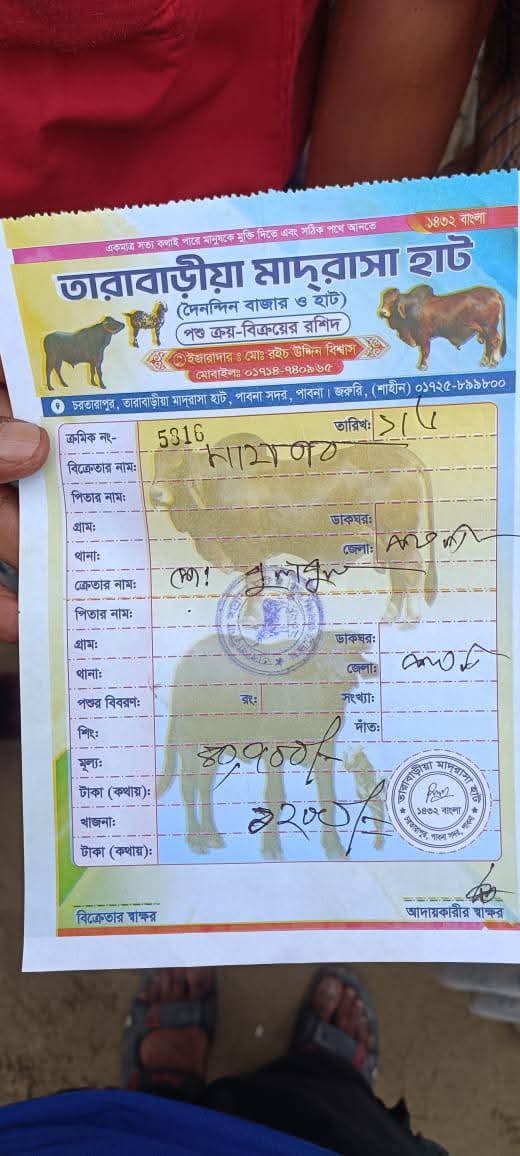 ১৪৩২ বাংলা
একমাত্র সত্য কথাই পারে মানুষকে মুক্তি দিতে এবং সঠিক পথে আনতে
তারাবাড়ীয়া মাদ্‌রাসা হাট
(দৈনন্দিন বাজার ও হাট)
পশু ক্রয়-বিক্রয়ের রশিদ
ইজারাদার ঃ মোঃ রইচ উদ্দিন বিশ্বাস
মোবাইলঃ ০১৭১৪-৭৪০৯৬৫
চরতারাপুর, তারাবাড়ীয়া মাদ্‌রাসা হাট, পাবনা সদর, পাবনা। জরুরি, (শাহীন) ০১৭২৫-৮৯৯৮০০
ক্রমিক নং- 5316 তারিখঃ
বিক্রেতার নামঃ
পিতার নামঃ
গ্রামঃ ডাকঘরঃ
থানাঃ জেলাঃ
ক্রেতার নামঃ মোঃ বুলবুল
পিতার নামঃ
গ্রামঃ ডাকঘরঃ
থানাঃ জেলাঃ
পশুর বিবরণঃ রংঃ সংখ্যাঃ
শিংঃ দাঁতঃ
মূল্যঃ
টাকা (কথায়)ঃ
খাজনাঃ
টাকা (কথায়)ঃ
তারাবাড়ীয়া মাদ্‌রাসা হাট
১৪৩২ বাংলা
চরতারাপুর, পাবনা সদর, পাবনা
বিক্রেতার স্বাক্ষর আদায়কারীর স্বাক্ষর